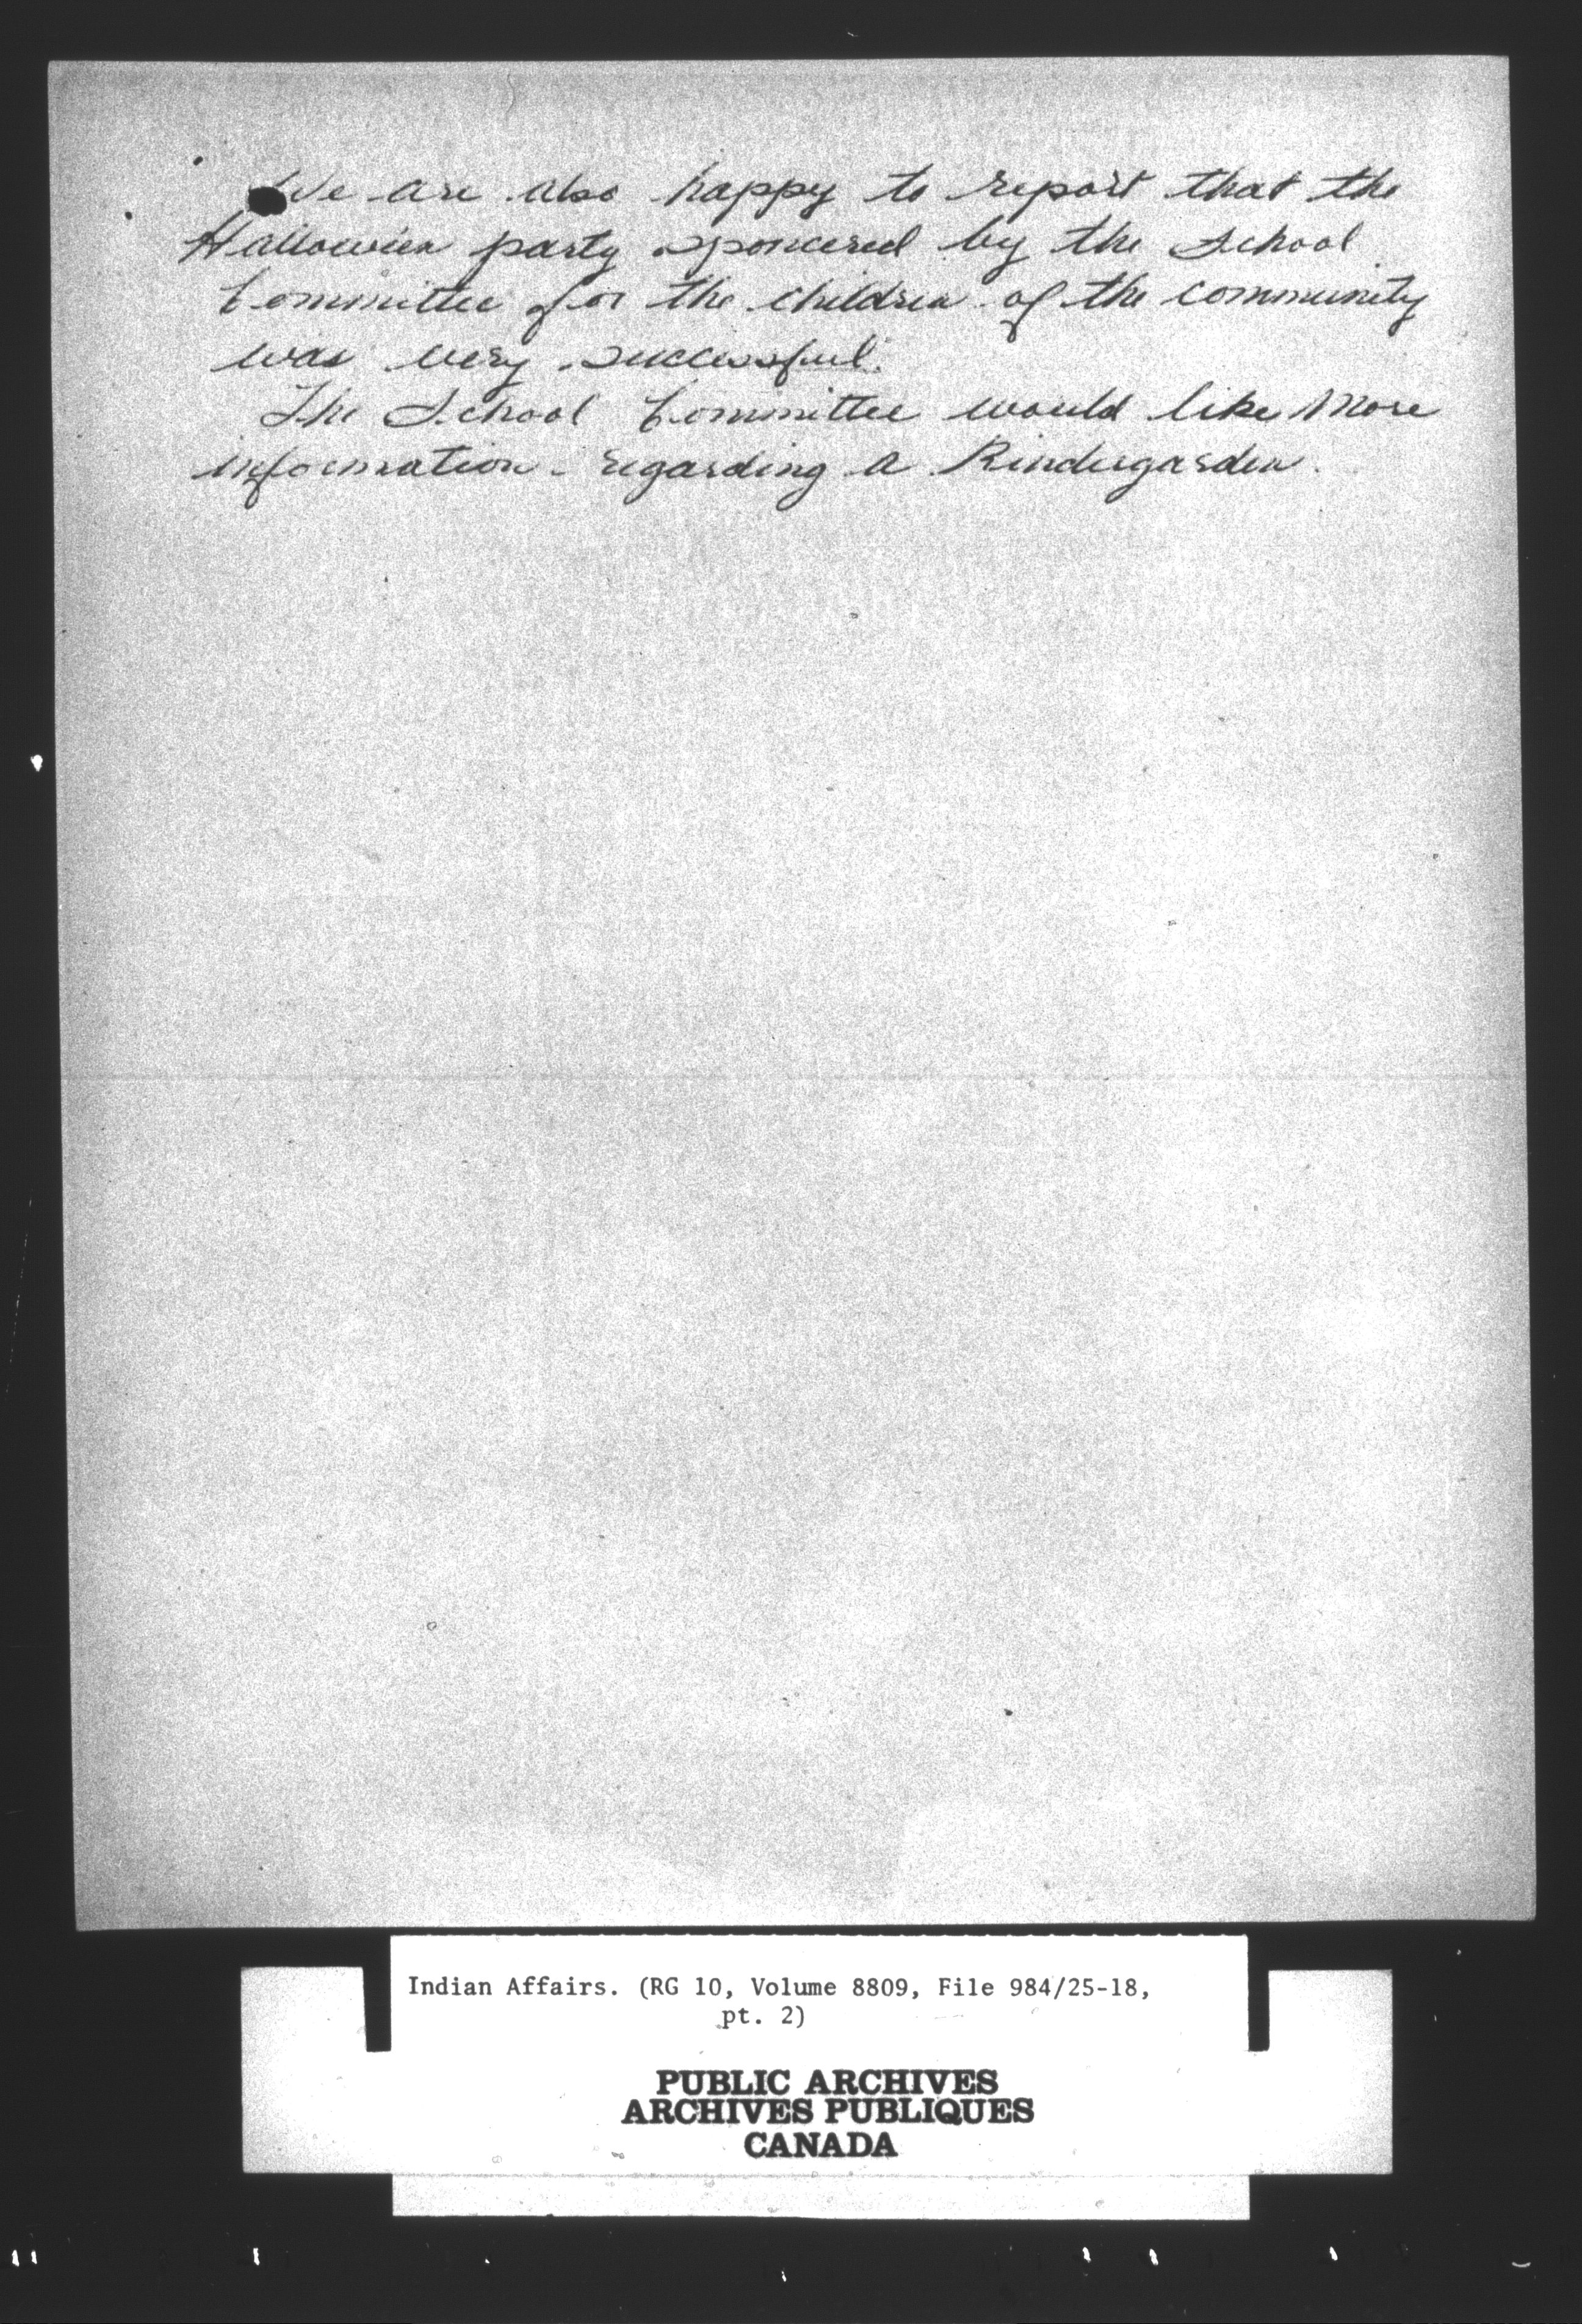 We are also happy to report that the
Hallowien party sponcered by the School
Committee for the children of the community
was very successful.
The School Committee would like more
information regarding a Kindergarden.
Indian Affairs. (RG 10, Volume 8809, File 984/25-18,
pt. 2)
PUBLIC ARCHIVES
ARCHIVES PUBLIQUES
CANADA